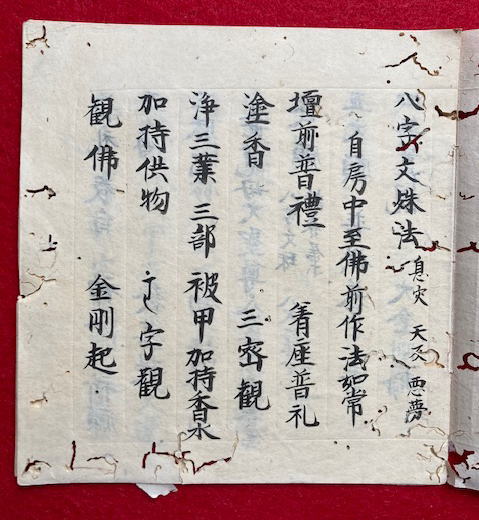 八字文殊法 息災 天変 悪夢
自房中至佛前作法如常
壇前普禮 着座普礼
塗香 三密観
浄三業 三部 被甲 加持香水
加持供物 字観
観佛 金剛起